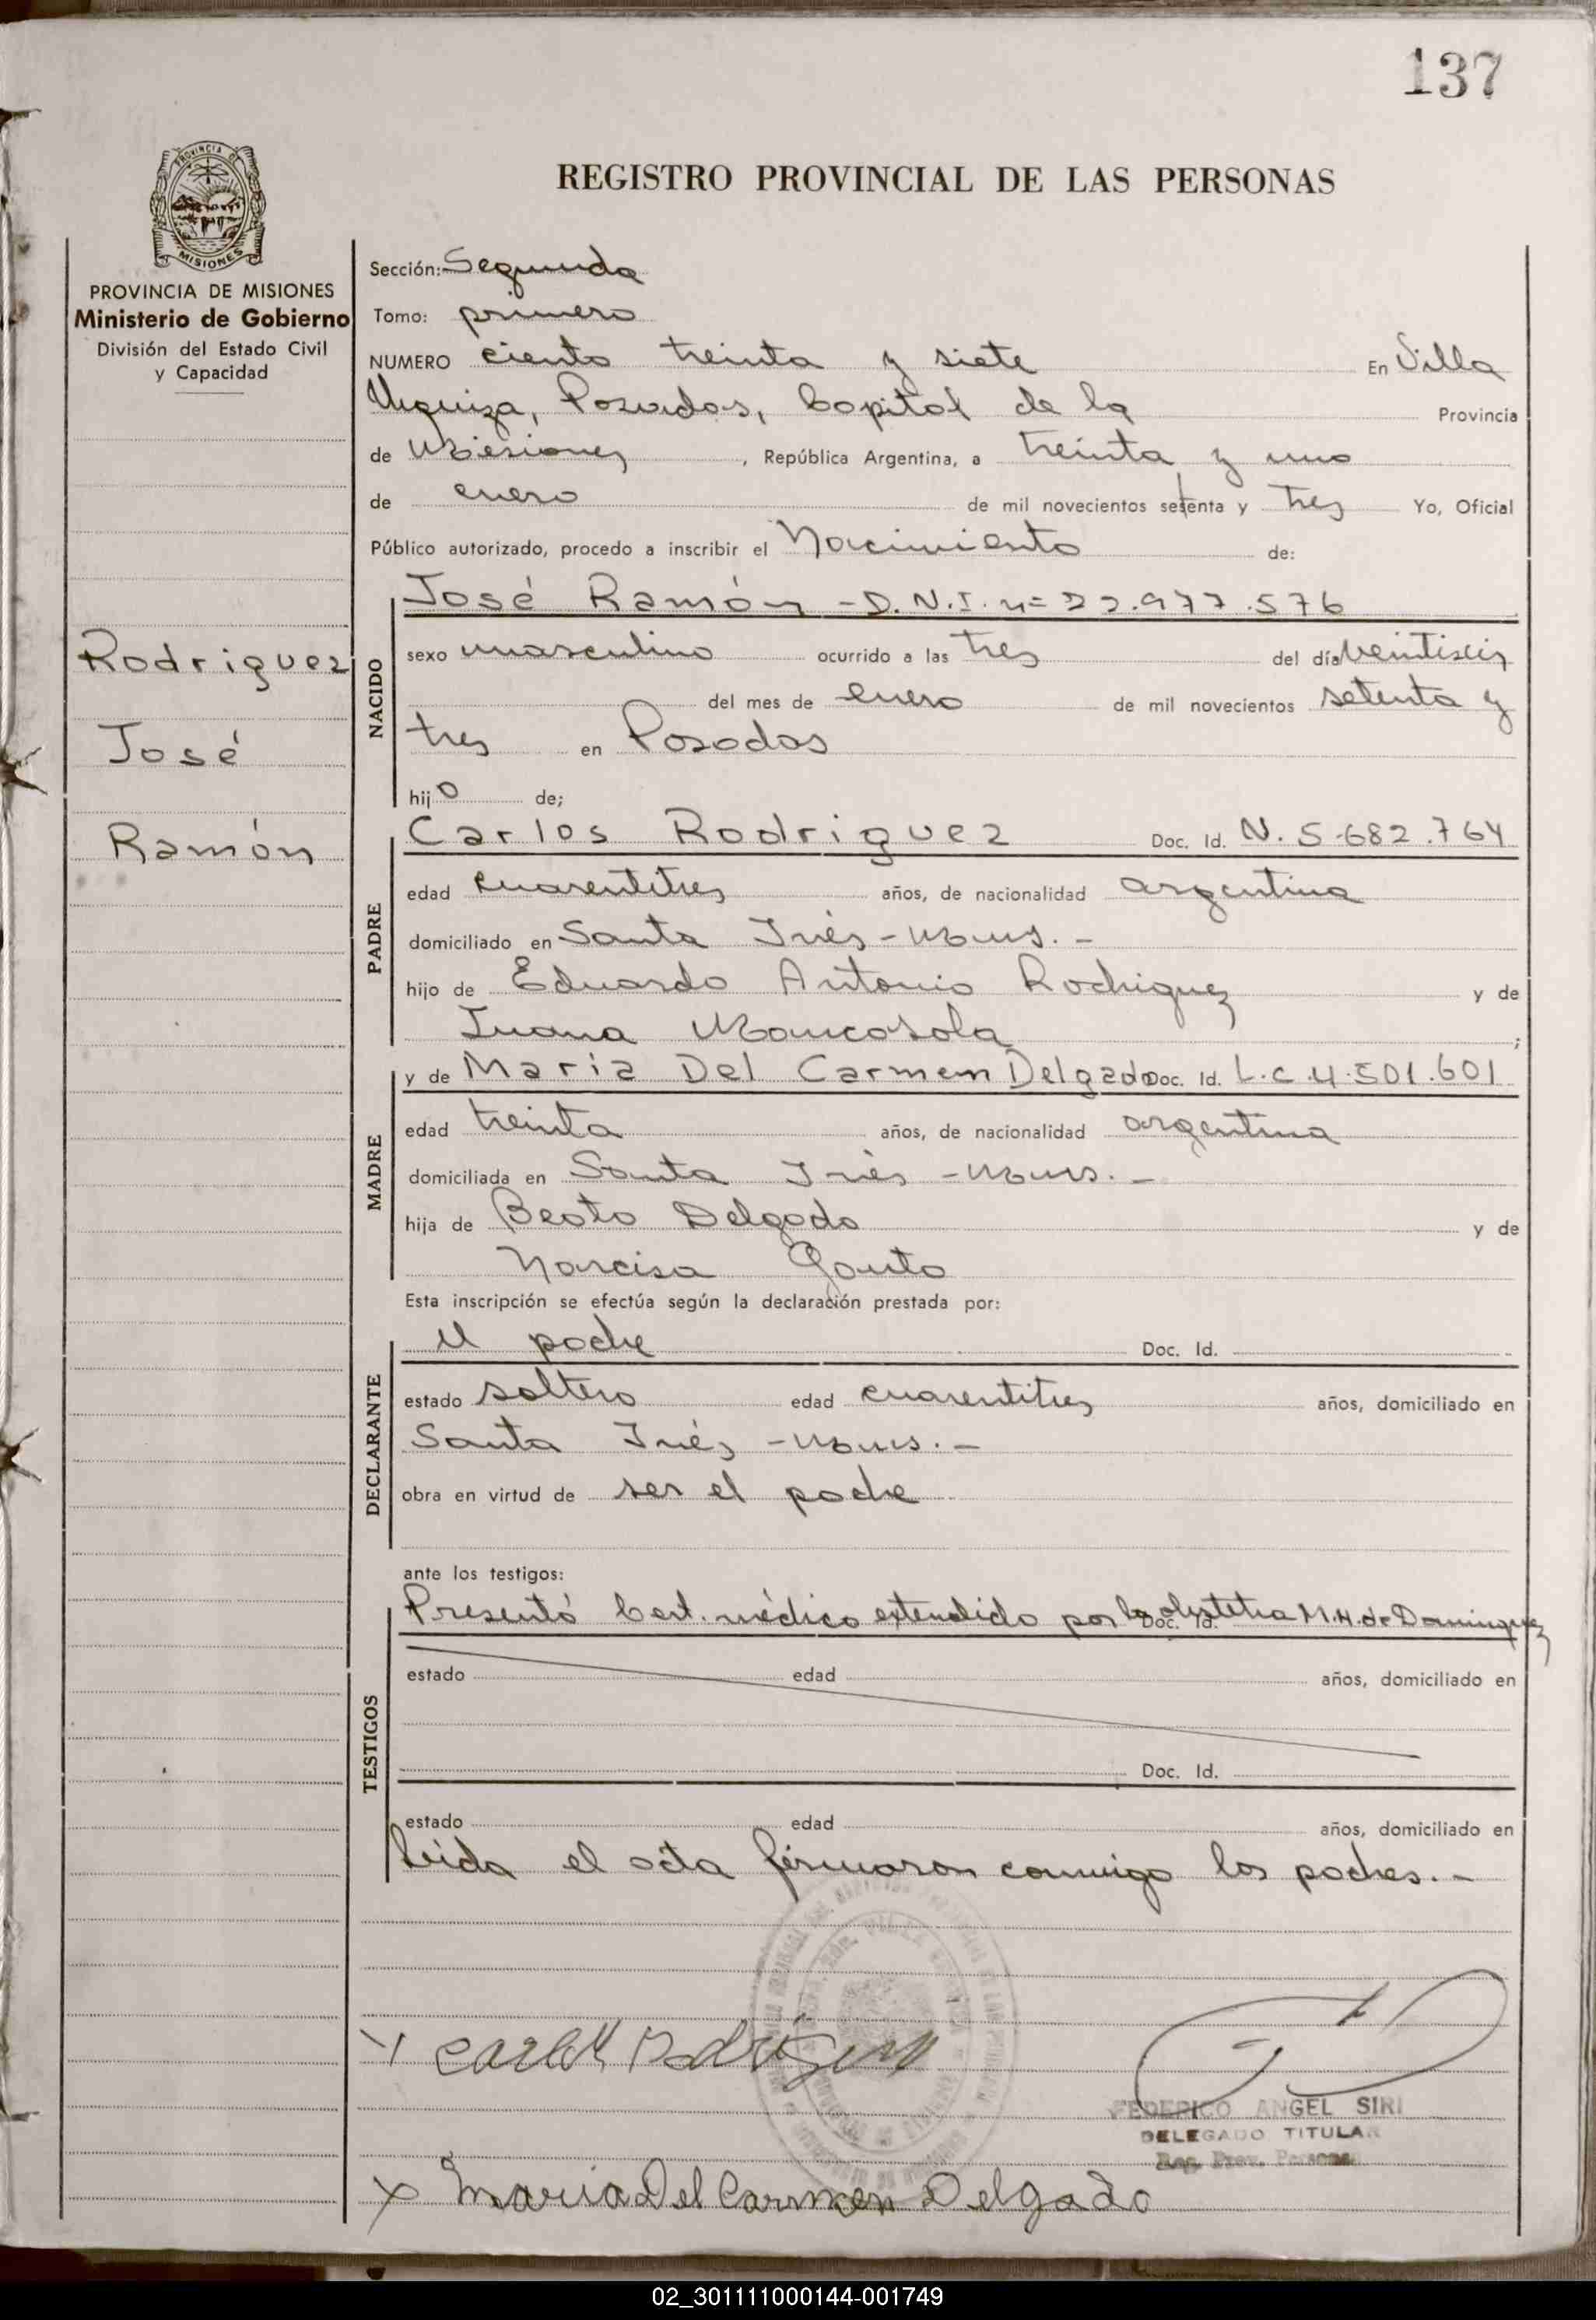 137
REGISTRO PROVINCIAL DE LAS PERSONAS
PROVINCIA DE MISIONES
Ministerio de Gobierno
División del Estado Civil
y Capacidad
Rodriguez
José
Ramón
Sección: Segunda
Tomo: primero
NUMERO ciento treinta y siete En Villa
Urquiza, Posadas, Capital de la Provincia
de Misiones, República Argentina, a treinta y uno
de enero de mil novecientos setenta y tres Yo, Oficial
Público autorizado, procedo a inscribir el Nacimiento de:
NACIDO
José Ramón - D.N.I. nº 22.977.576
sexo masculino ocurrido a las tres del día veintiseis
del mes de enero de mil novecientos setenta y
tres en Posadas
hijo de;
PADRE
Carlos Rodriguez Doc. Id. N. 5.682.764
edad cuarentitres años, de nacionalidad argentina
domiciliado en Santa Inés - Mnes. -
hijo de Eduardo Antonio Rodriguez y de
Juana ;
MADRE
y de Maria Del Carmen Delgado Doc. Id. L.C. 4.501.601
edad treinta años, de nacionalidad argentina
domiciliada en Santa Inés - Mnes. -
hija de Beato Delgado y de
Narcisa Gauto
Esta inscripción se efectúa según la declaración prestada por:
DECLARANTE
el padre Doc. Id.
estado soltero edad cuarentitres años, domiciliado en
Santa Inés - Mnes. -
obra en virtud de ser el padre
ante los testigos:
TESTIGOS
Presentó Cert. médico extendido por la obstetra M.H. de Dominguez Doc. Id.
estado edad años, domiciliado en
Doc. Id.
estado edad años, domiciliado en
Leida el acta firmaron conmigo los padres. -
x Carlos Rodriguez
FEDERICO ANGEL SIRI
DELEGADO TITULAR
Reg. Prov. Personas
x Maria Del Carmen Delgado
02_301111000144-001749